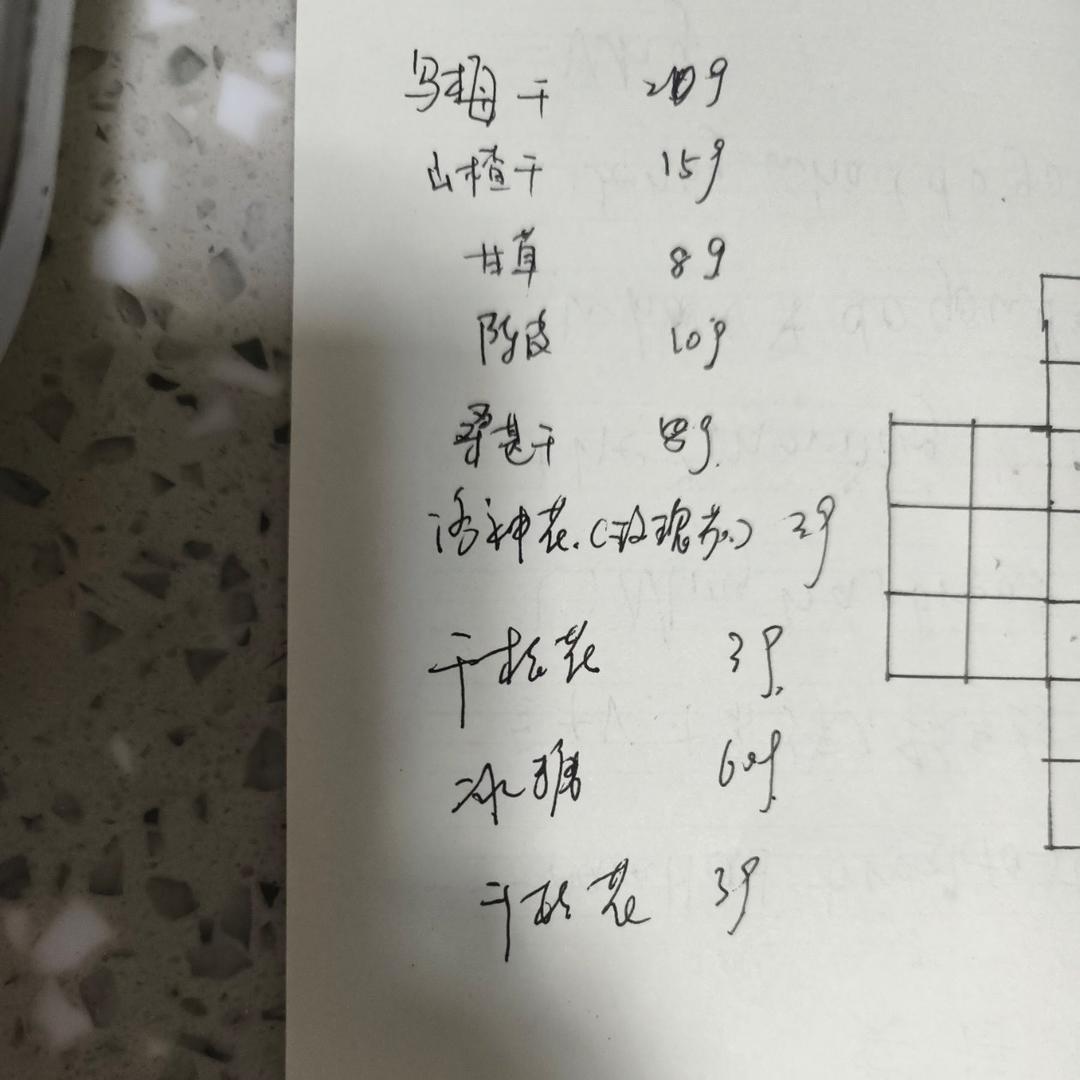 乌梅干 20g
山楂干 15g
甘草 8g
陈皮 10g
桑葚干 8g.
洛神花.(玫瑰茄.) 3g
干桂花 3g.
冰糖 60g.
干 花 3g